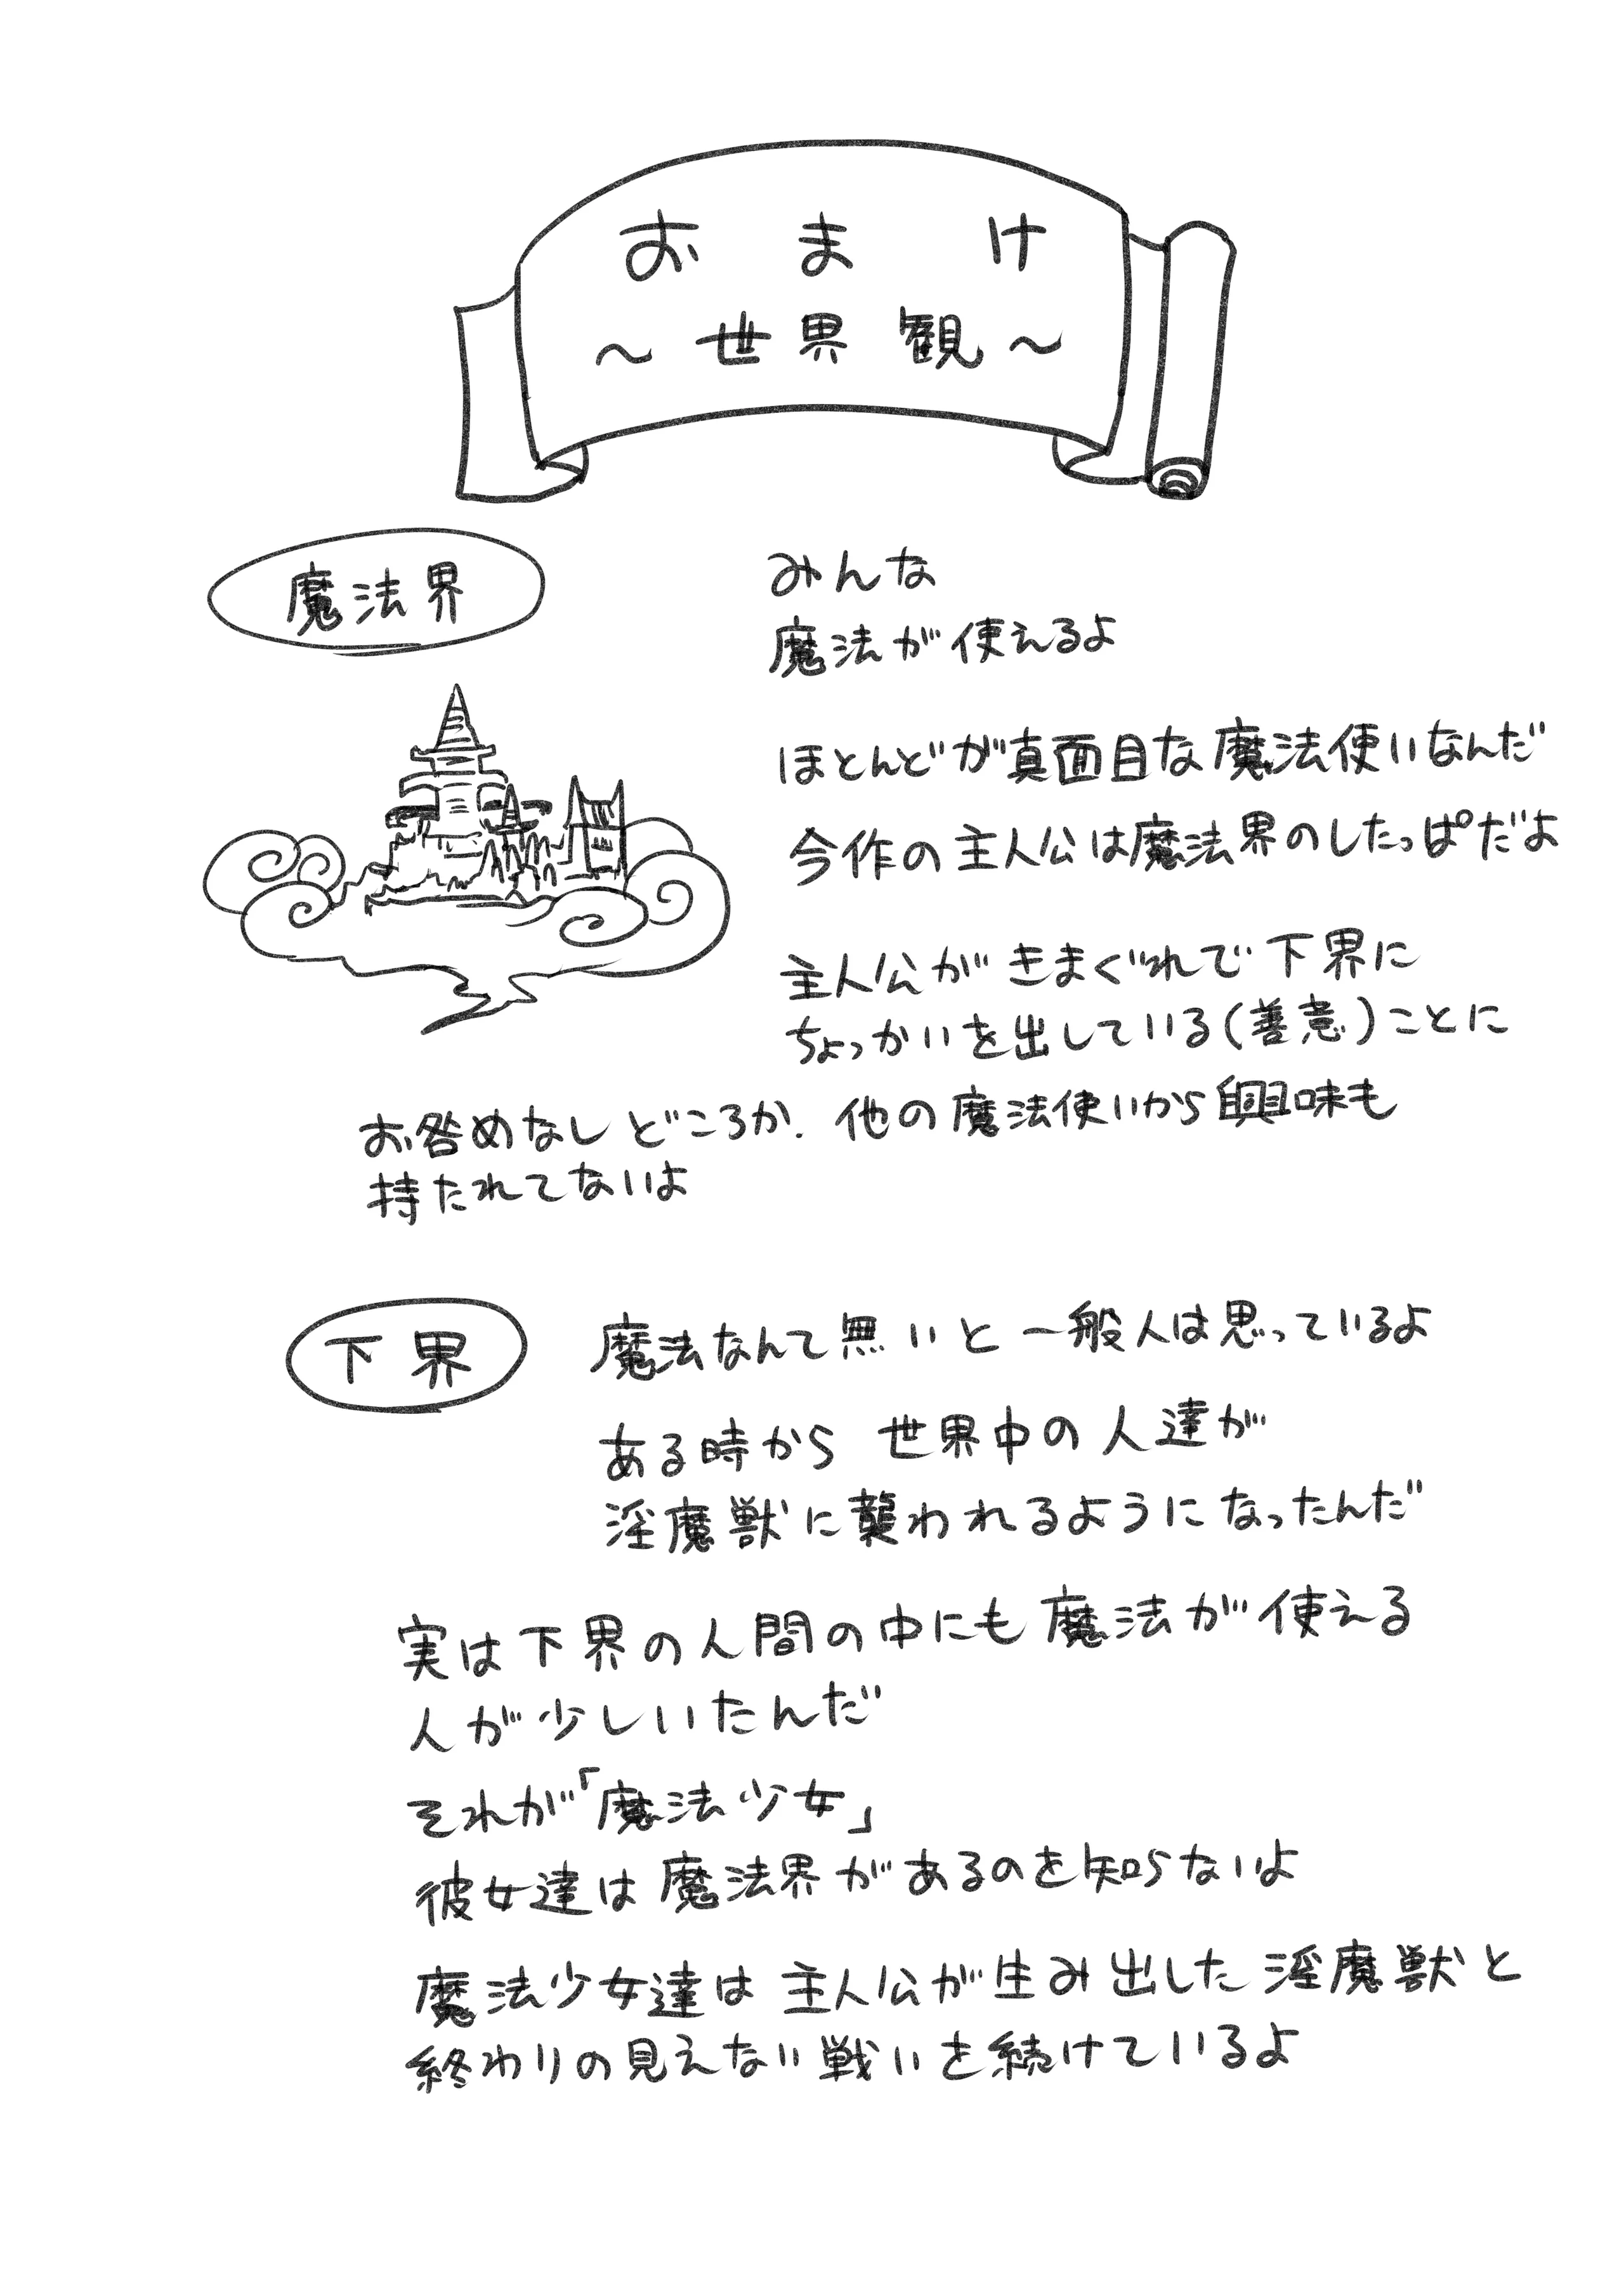 おまけ
～世界観～
魔法界
みんな
魔法が使えるよ
ほとんどが真面目な魔法使いなんだ
今作の主人公は魔法界のしたっぱだよ
主人公がきまぐれで下界に
ちょっかいを出している(善意)ことに
お咎めなしどころか.他の魔法使いから興味も
持たれてないよ
下界
魔法なんて無いと一般人は思っているよ
ある時から世界中の人達が
淫魔獣に襲われるようになったんだ
実は下界の人間の中にも魔法が使える
人が少しいたんだ
それが「魔法少女」
彼女達は魔法界があるのを知らないよ
魔法少女達は主人公が生み出した淫魔獣と
終わりの見えない戦いを続けているよ